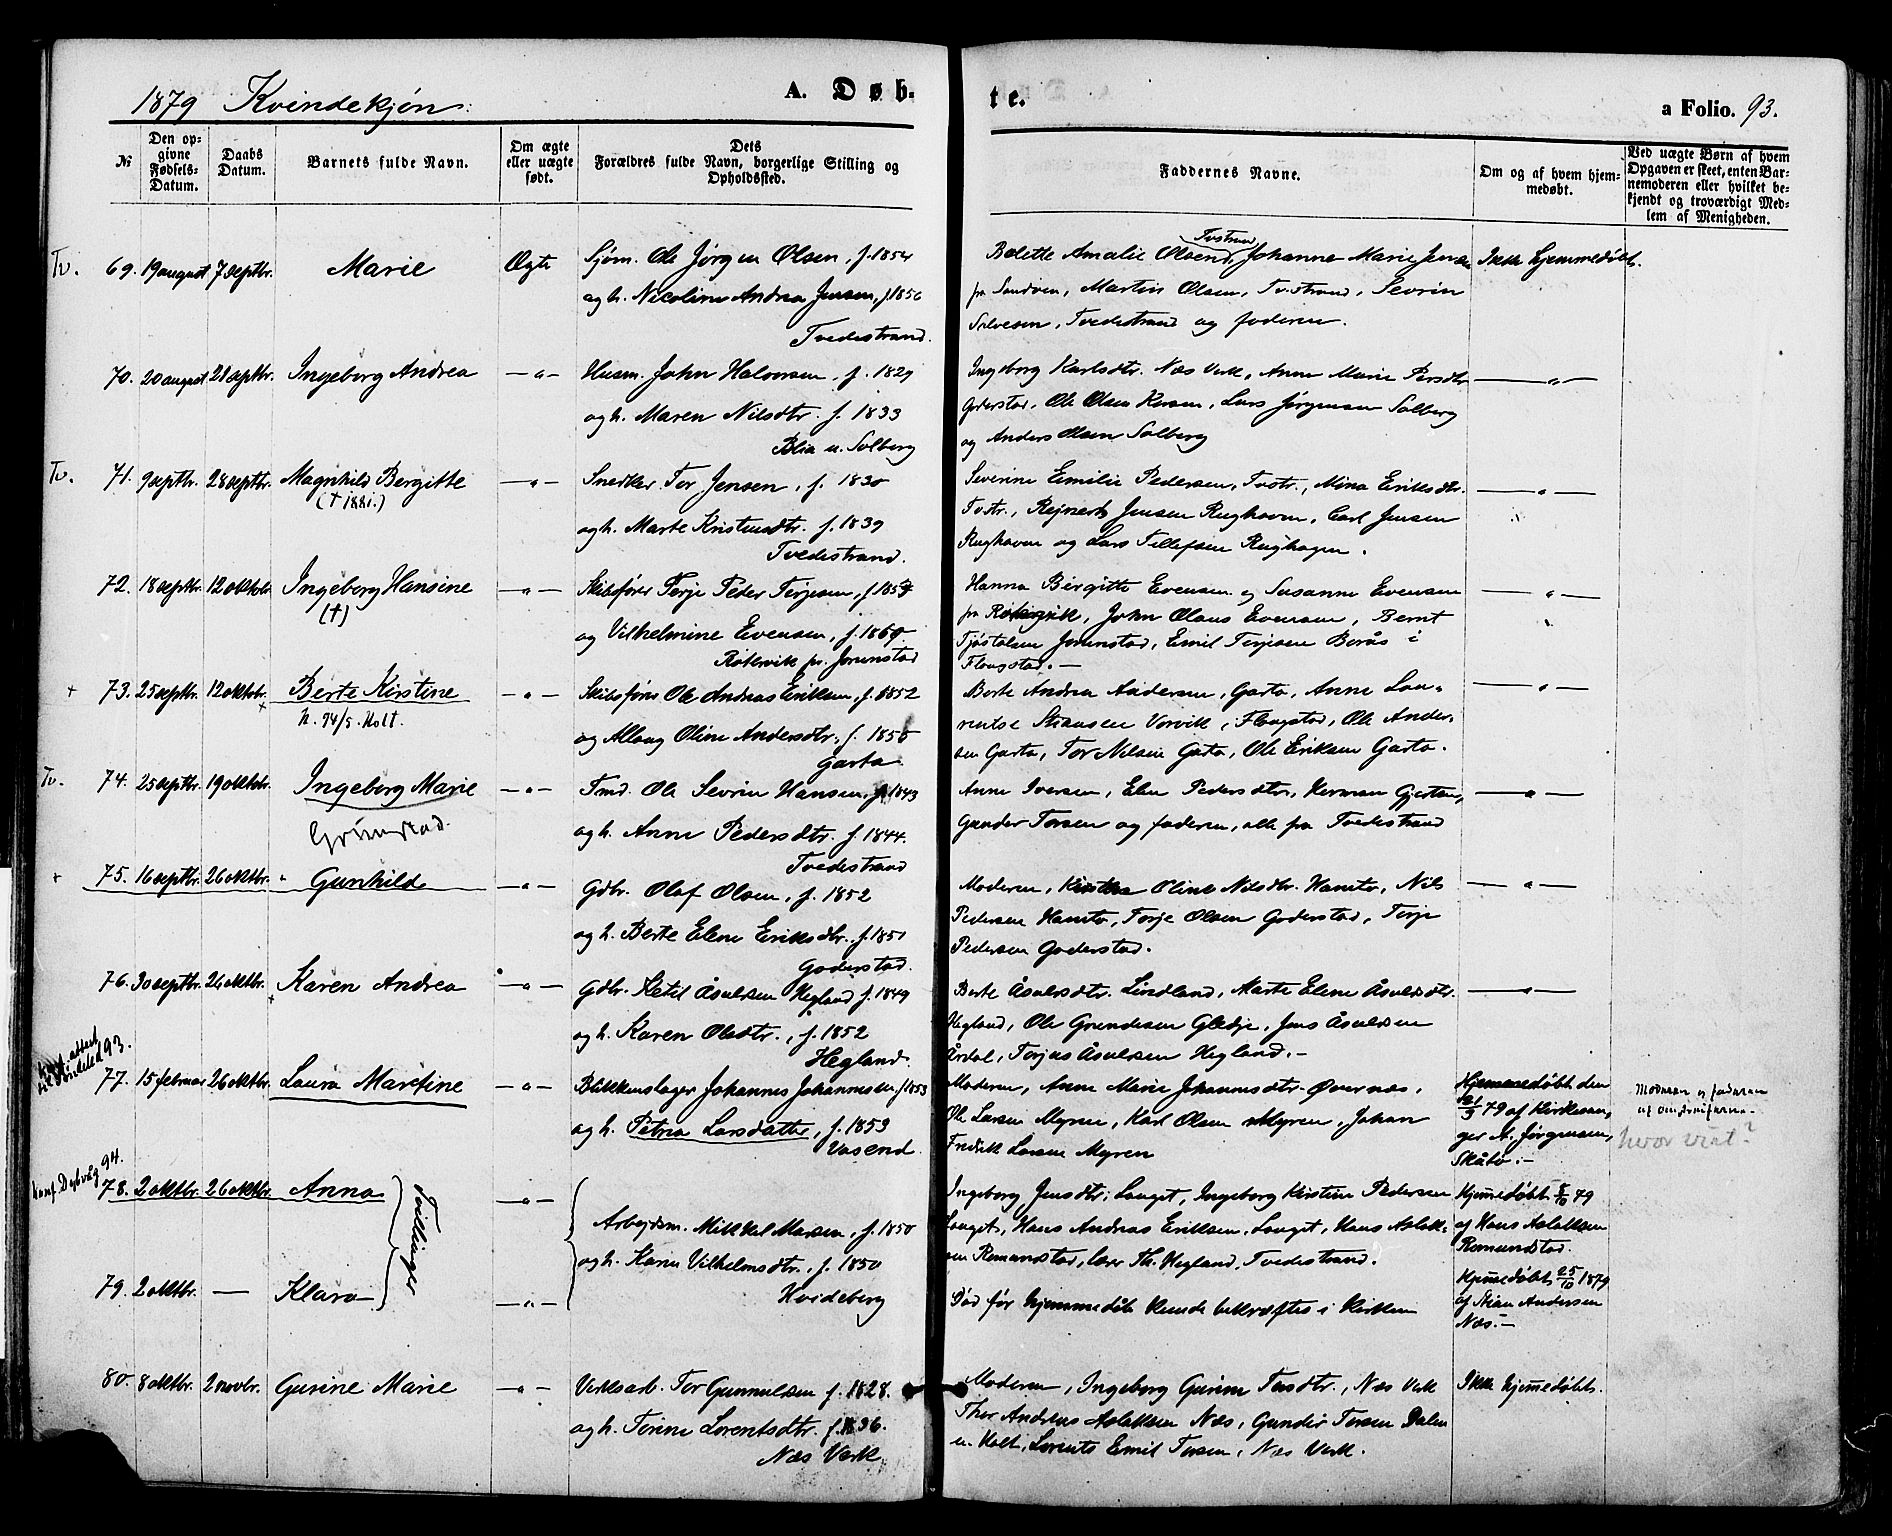 1879 Kvindekjøn.
A. Døb-
te.
a Folio. 93.
№
Den op-
givne
Fødsels-
Datum.
Daabs
Datum.
Barnets fulde Navn.
Om ægte
eller uægte
født.
Dets
Forældres fulde Navn, borgerlige Stilling og
Opholdssted.
Faddernes Navne.
Om og af hvem hjem-
medøbt.
Ved uægte Børn af hvem
Opgaven er skeet, enten Bar-
nemoderen eller hvilket be-
kjendt og troværdigt Med-
lem af Menigheden.
Tv. 69. 19 august 7 septbr. Marie Ægte
Sjøm. Ole Jørgen Olsen, f. 1854
og h. Nicoline Andrea Jensen, f. 1856
Tvedestrand.
Tvstrand
Bolette Amalie Olsen, Johanne Marie Jensen
fra Sandven, Martin Olsen, Tvstrand, Sevrin
Salvesen, Tvedestrand og faderen.
Ikke hjemmedøbt.
70. 20 august 21 septbr. Ingeborg Andrea — " —
Husm. John Halvorsen, f. 1829
og h. Maren Nilsdtr. f. 1833
Blia u. Solberg
Ingeborg Karlsdtr. Næs Verk, Anne Marie Persdtr
Goderstad, Ole Olsen, Lars Jørgensen Solberg
og Anders Olsen Solberg
— " —
Tv. 71. 9 septbr. 28 septbr. Magnhild Bergitte — " —
(† 1881.)
Snedker Tor Jensen, f. 1830
og h. Marte Kristensdtr. f. 1839
Tvedestrand.
Severine Emilie Pedersen, Tvstr., Mina Eriksdtr.
Tvstr., Rejnert Jensen Rughaven, Carl Jensen
Rughaven og Lars Tellefsen Rughagen.
— " —
72. 18 septbr. 12 oktobr. Ingeborg Hansine — " —
(†)
Skibsfører Terje Peder Terjesen, f. 1854
og Vilhelmine Evensen, f. 1860.
Rotervik pr. Jorunstad
Hanna Birgitte Evensen og Susanne Evensen
fra Rotervik, John Olaus Evensen, Bernt
Tjøstolsen Jorunstad, Emil Terjesen Borås i
Flangstad. —
— " —
+ 73. 25 septbr. 12 oktbr. Berte Kirstine — " —
n. 94/5. Holt.
Skibsfører Ole Andreas Eriksen, f. 1852
og Allaug Oline Andersdtr., f. 1855
Garta.
Berte Andrea Andersen, Garta, Anne Lau-
rentse Vervik, Flangstad, Ole Ander-
sen Garta, Tor Nilsen Garta, Ole Eriksen Garta.
— " —
Tv. 74. 25 septbr. 19 oktobr. Ingeborg Marie — " —
Grimstad.
Tmd. Ole Sevrin Hansen, f. 1843
og h. Anne Pedersdtr. f. 1844.
Tvedestrand
Anne Iversen, Elen Pedersdtr, Herman Gjertsen,
Gunder Torsen og faderen, alle fra Tvedestrand
— " —
+ 75. 16 septbr. 26 oktbr. Gunhild — " —
Gdbr. Olaf Olsen, f. 1852
og h. Berte Elene Eriksdtr. f. 1851
Goderstad.
Moderen, Oline Nilsdtr. Hamtv, Nils
Pedersen Hamtv, Terje Olsen Goderstad, Terje
Pedersen Goderstad.
— " —
76. 30 septbr. 26 oktbr. Karen Andrea — " —
Gdbr. Ketil Åsulsen Hegland f. 1849
og h. Karen Olsdtr., f. 1852
Hegland.
Berte Åsulsdtr. Lindland, Marte Elene Åsulsdtr.
Hegland, Ole Gundersen Gledje, Jens Åsulsen
Årdal, Terjus Åsulsen Hegland. —
— " —
Konf. attest
til Søndeled 93.
77. 15 februar 26 oktbr. Laura Marthine — " —
Blikkenslager Johannes Johannesen f. 1853
og h. Petrea Larsdatter, f. 1853
Vasend.
Moderen, Anne Marie Johannesdtr. Øvernæs,
Ole Larsen Myren, Karl Olsen Myren, Johan
Fredrik Larsen Myren
Hjemmedøbt den
21/3 79 af Kirkesan-
ger A. Jørgensen,
Skåtø. —
Moderen og faderen
af omstreiferne.
hvor viet?
Konf. Dybvåg 94.
78. 2 oktbr. 26 oktbr. Anna — " —
Tvillinger
Arbejdsm. Mikkel Marsen, f. 1850
og h. Karen Vilhelmsdtr., f. 1850
Hvideberg
Ingeborg Jensdtr., Lauget, Ingeborg Kirstine Pedersen
Lauget, Hans Andreas Eriksen, Lauget, Hans Aslak-
sen Romundstad, lærer Th. Hegland, Tvedestrand.
Hjemmedøbt 8/10 79
af Hans Aslaksen
Romundstad.
79. 2 oktbr. — Klara — " —
Død før hjemmedåb kunde bekræftes i Kirken
Hjemmedøbt 25/10 1879
af Stian Andersen
Næs. —
80. 8 oktbr. 2 novbr. Gurine Marie — " —
Verksarb. Tor Gunnulsen f. 1828.
og h. Torine Lorentsdtr. f. 1836.
Næs Verk.
Moderen, Ingeborg Gurine Torsdtr., Næs Verk
Thor Andreas Aslaksen Næs, Gunder Torsen Dalen
u. Holt, Lorents Emil Torsen, Næs Verk.
Ikke hjemmedøbt.